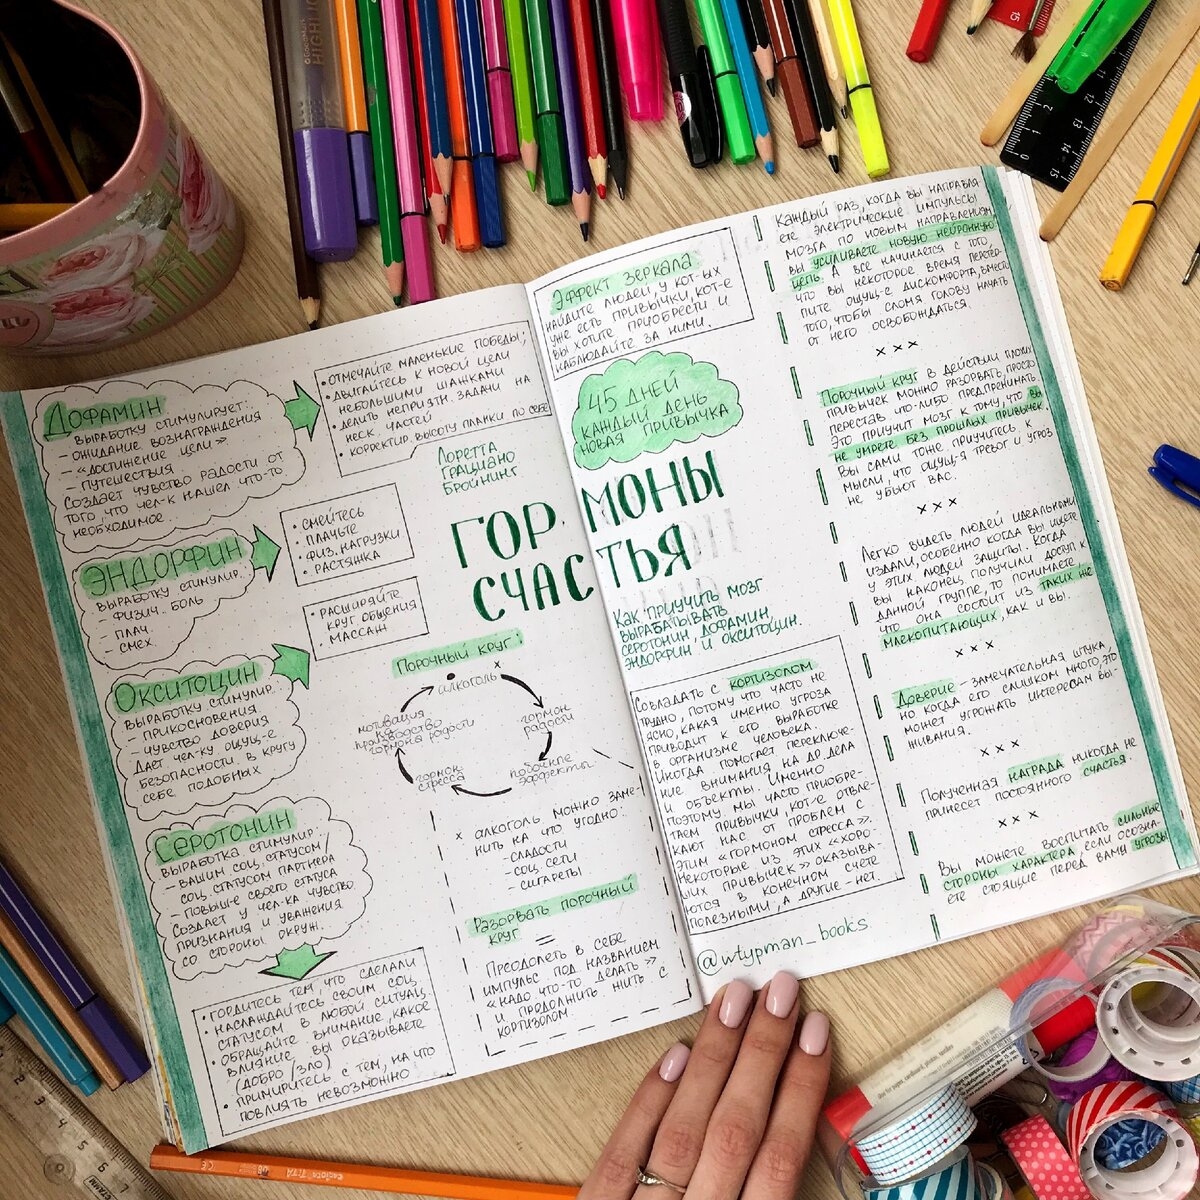 Дофамин
выработку стимулирует:
- ожидание вознаграждения
- «достижение цели»
- путешествия
Создает чувство радости от
того, что чел-к нашел что-то
необходимое.
• отмечайте маленькие победы;
• двигайтесь к новой цели
небольшими шажками
• делить неприятн. задачи на
неск. частей
• корректир. высоту планки по себе
Эндорфин
выработку стимулир.:
- физич. боль
- плач.
- смех.
• смейтесь
• плачьте
• физ. нагрузки
• растяжка
Окситоцин
выработку стимулир.:
- прикосновения
- чувство доверия
Дает чел-ку ощущ-е
безопасности в кругу
себе подобных
• расширяйте
круг общения
• массаж
Серотонин
выработка стимулир.:
- вашим соц. статусом/
соц. статусом партнера
- повыш-е своего статуса
Создает у чел-ка чувство
признания и уважения
со стороны окруж.
• гордитесь тем, что сделали
• наслаждайтесь своим соц.
статусом в любой ситуац.
• обращайте внимание, какое
влияние вы оказываете
(добро/зло)
• примиритесь с тем, на что
повлиять невозможно
Лоретта
Грациано
Бройнинг
ГОРМОНЫ
СЧАСТЬЯ
Как приучить мозг
вырабатывать
серотонин, дофамин,
эндорфин и окситоцин.
Порочный круг:
x
алкоголь
гормон
радости
побочные
эффекты
гормон
стресса
мотивация
производство
гормона радости
x алкоголь можно заме-
нить на что угодно:
- сладости
- соц. сети
- сигареты
Разорвать порочный
круг
=
Преодолеть в себе
импульс под названием
«надо что-то делать»
и продолжить жить с
кортизолом.
Эффект зеркала:
найдите людей, у кот-ых
уже есть привычки, кот-е
вы хотите приобрести и
наблюдайте за ними.
45 дней
каждый день
новая привычка
Совладать с кортизолом
трудно, потому что часто не
ясно, какая именно угроза
приводит к его выработке
в организме человека.
Иногда помогает переключе-
ние внимания на др. дела
и объекты. Именно
поэтому мы часто приобре-
таем привычки, кот-е отвле-
кают нас от проблем с
этим «гормоном стресса».
Некоторые из этих «хоро-
ших привычек» оказыва-
ются в конечном счете
полезными, а другие - нет.
@wtypman_books
Каждый раз, когда вы направля
ете электрические импульсы
мозга по новым направлениям,
вы усиливаете новую нейронную
цепь. А все начинается с того,
что вы некоторое время перетер-
пите ощущ-е дискомфорта, вместо
того, чтобы сломя голову начать
от него освобождаться.
x x x
Порочный круг в действии плохих
привычек можно разорвать, просто
перестав что-либо предпринимать.
Это приучит мозг к тому, что вы
не умрете без прошлых привычек.
Вы сами тоже приучитесь к
мысли, что ощущ-я тревог и угроз
не убьют вас.
x x x
Легко видеть людей идеальными
издали, особенно когда вы ищете
у этих людей защиты. Когда
вы наконец получили доступ к
данной группе, то понимаете,
что она состоит из таких же
млекопитающих, как и вы.
x x x
Доверие - замечательная штука,
но когда его слишком много, это
может угрожать интересам вы-
живания.
x x x
Полученная награда никогда не
принесет постоянного счастья.
x x x
Вы можете воспитать сильные
стороны характера, если осозна-
ете стоящие перед вами угрозы